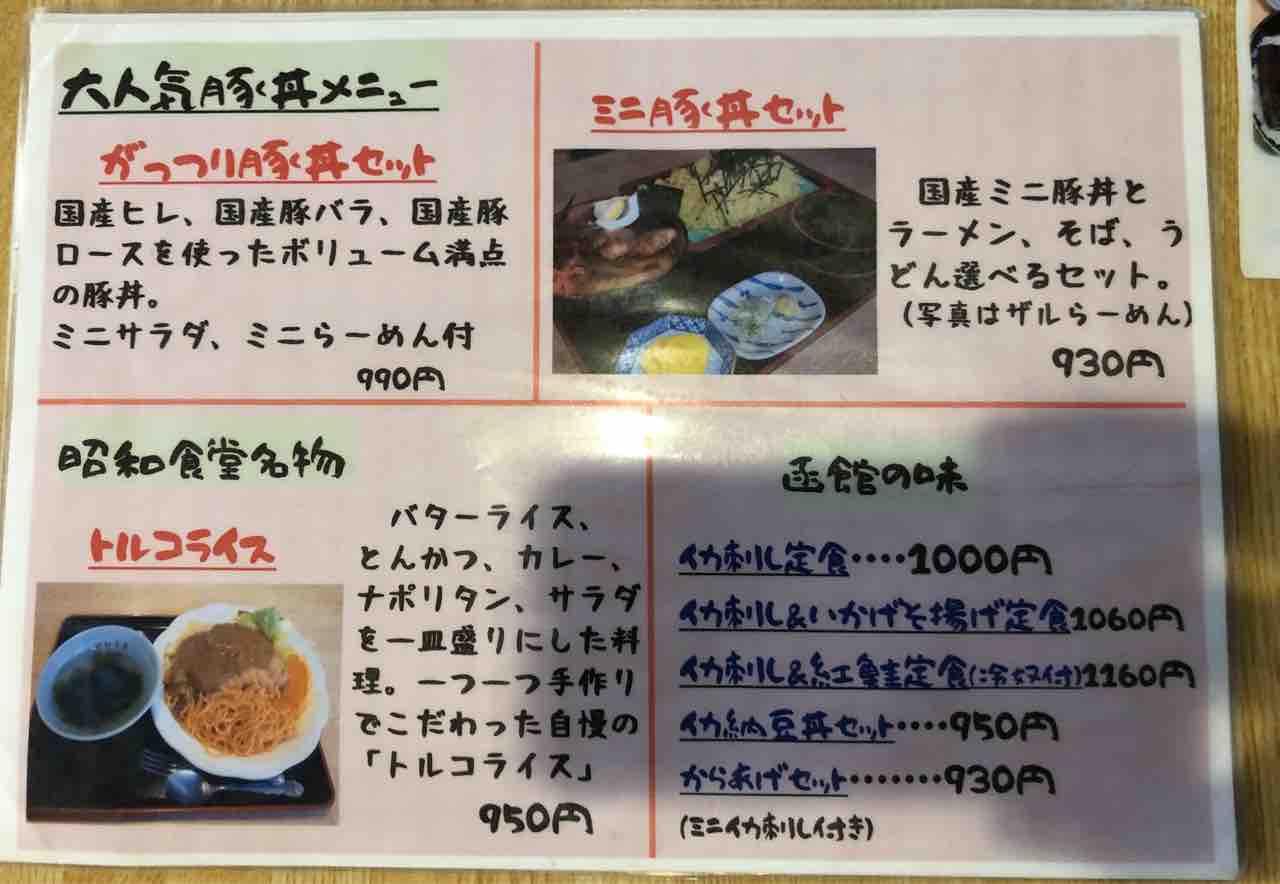 大人気豚丼メニュー
がっつり豚丼セット
国産ヒレ、国産豚バラ、国産豚
ロースを使ったボリューム満点
の豚丼。
ミニサラダ、ミニらーめん付
990円
ミニ豚丼セット
国産ミニ豚丼と
ラーメン、そば、う
どん選べるセット。
(写真はザルらーめん)
930円
昭和食堂名物
トルコライス
バターライス、
とんかつ、カレー、
ナポリタン、サラダ
を一皿盛りにした料
理。一つ一つ手作り
でこだわった自慢の
「トルコライス」
950円
函館の味
イカ刺し定食····1000円
イカ刺し&いかげそ揚げ定食1060円
イカ刺し&紅鮭定食(冷奴付)1160円
イカ納豆丼セット····950円
からあげセット·······930円
(ミニイカ刺し付き)